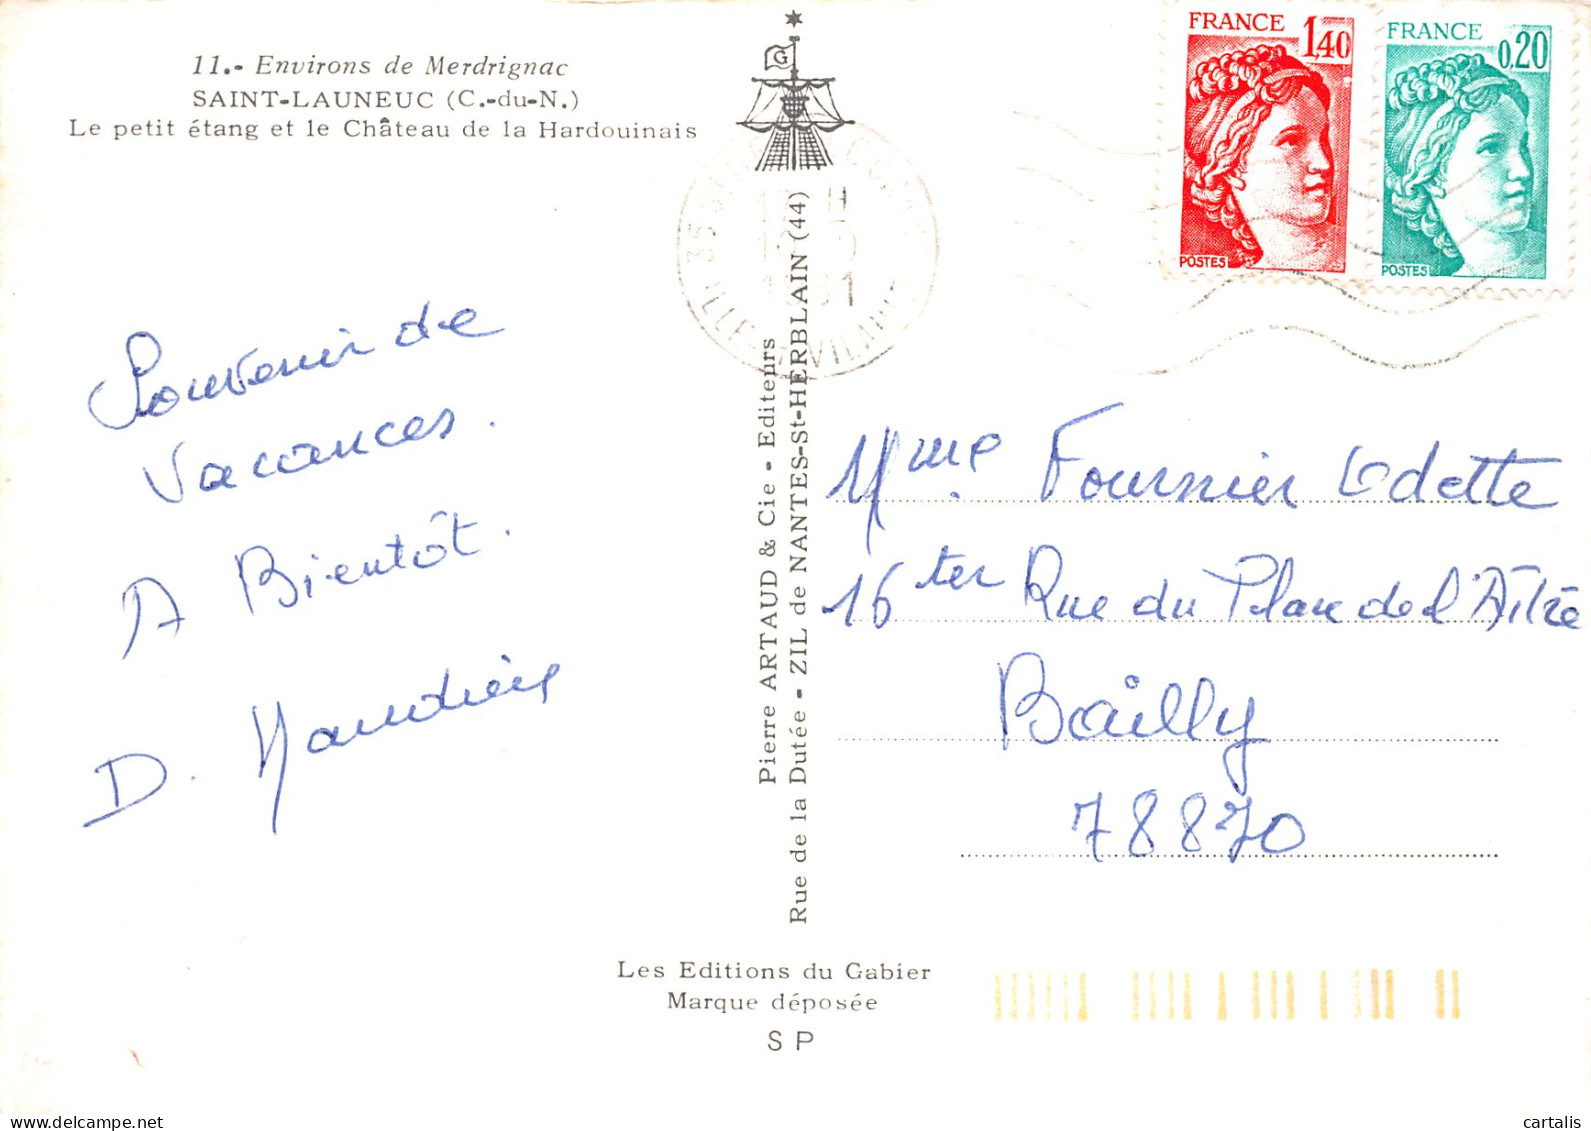 11.- Environs de Merdrignac
SAINT-LAUNEUC (C.-du-N.)
Le petit étang et le Château de la Hardouinais
G
FRANCE
1,40
POSTES
FRANCE
0,20
POSTES
35
ILLE VILAINE
Souvenir de
vacances.
A Bientôt.
D.
Pierre ARTAUD & Cie - Editeurs
Rue de la Dutée - ZIL de NANTES-St-HERBLAIN (44)
Mme Fournier Odette
16 ter Rue du Plan de l'Aître
Bailly
78870
Les Editions du Gabier
Marque déposée
S P
delcampe.net
cartalis